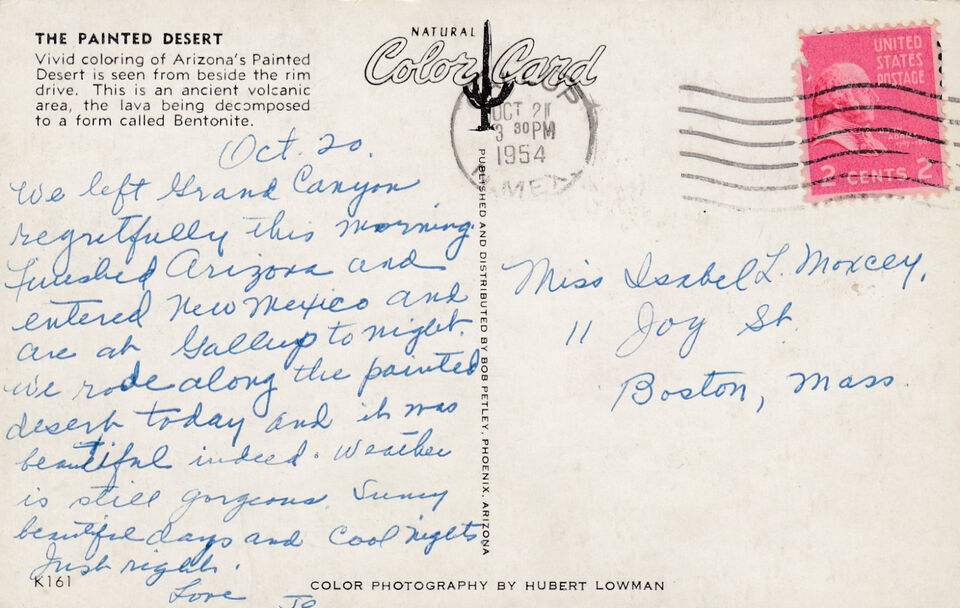 THE PAINTED DESERT
Vivid coloring of Arizona's Painted
Desert is seen from beside the rim
drive. This is an ancient volcanic
area, the lava being decomposed
to a form called Bentonite.
NATURAL
Color Card
OCT 21
3 30 PM
1954
N. MEX.
UNITED
STATES
POSTAGE
2 CENTS 2
Oct. 20.
We left Grand Canyon
regretfully this morning.
Finished Arizona and
entered New Mexico and
are at Gallup to night.
We rode along the painted
desert today and it was
beautiful indeed. Weather
is still gorgeous. Sunny
beautiful days and cool nights
Just right.
Love
PUBLISHED AND DISTRIBUTED BY BOB PETLEY, PHOENIX, ARIZONA
Miss Isabel L. Moxcey,
11 Joy St.
Boston, Mass.
K161
COLOR PHOTOGRAPHY BY HUBERT LOWMAN